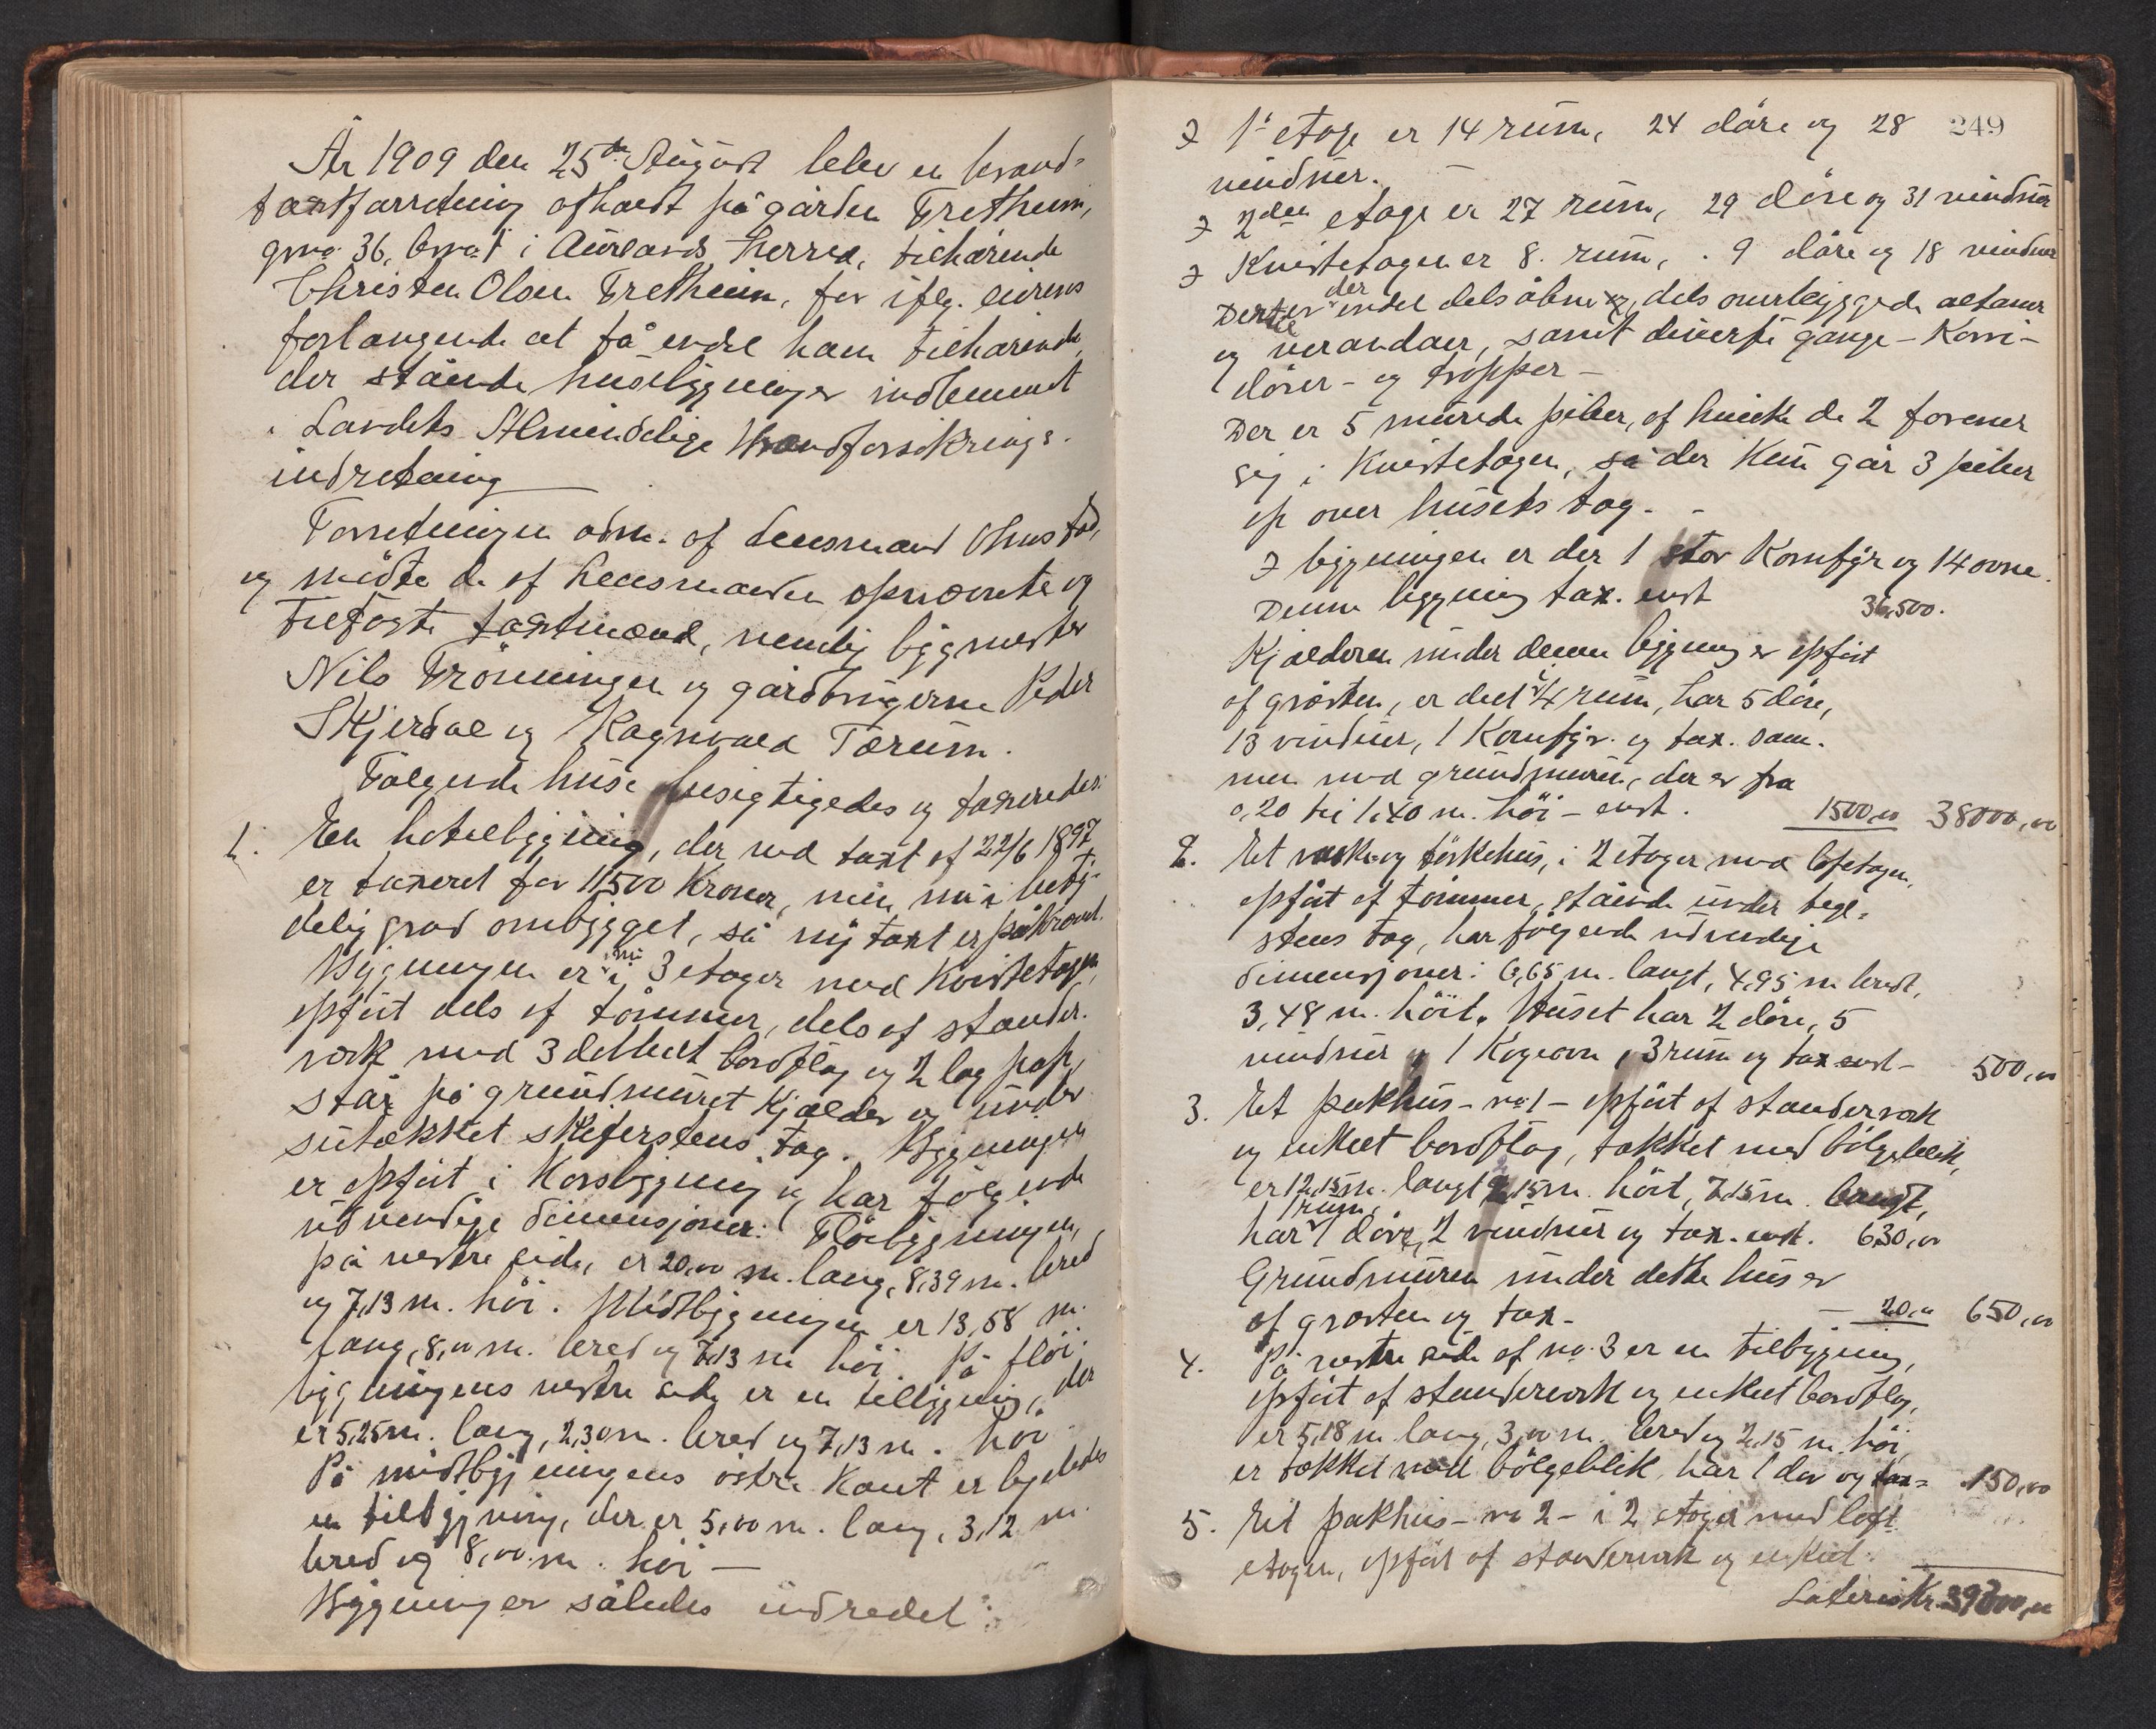 År 1909 den 25de August blev en brand-
taxtforretning afholdt på gården Fretheim,
gno 36, bno 1 i Aurlands herred, tilhørende
Christen Olsen Fretheim, for iflg. eierens
forlangende at få endel ham tilhørende,
der stående husebygninger indlemmet
i Landets Almindelige Brandforsikrings-
indretning
Forretningen adm. af lensmand Ohnstad,
og mødte de af lensmanden opnævnte og
tiltagte taxtmænd, nemlig bygmester
Nils Frønningen og gårdbrugerne Peder
Skjerdal og Ragnvald Tærum.
Følgende huse besigtigedes og taxeredes:
1. En hotelbygning, der ved taxt af 22/6 1897
er taxeret for 11500 Kroner, men nu i bety-
delig grad ombygget, så ny taxt er påkrævet.
Bygningen er nu i 3 etager med Kvistetage,
opført dels af tømmer, dels af stander-
verk med 3 dobbelt bordflag og 2 lag pap,
står på grundmuret Kjælder og under
sutækket skiferstens tag. Bygningen
er opført i Korsbygning og har følgende
udvendige dimensjoner: Fløibygningen,
på vestre side, er 20,00 m. lang, 8,39 m. bred
og 7,13 m. høi. Midtbygningen er 13,58 m.
lang, 8,00 m. bred og 7,13 m høi. På fløi-
bygningens vestre side er en tilbygning, der
er 5,25 m. lang, 2,30 m. bred og 7,13 m. høi
På midtbygningens østre Kant er ligeledes
en tilbygning, der er 5,00 m. lang, 3,12 m.
bred og 8,00 m. høi —
Bygningen er således indredet:
249
I 1ste etage er 14 rum, 24 døre og 28
vinduer.
I 2den etage er 27 rum, 29 døre og 31 vinduer
I Kvistetagen er 8 rum, 9 døre og 18 vinduer
Dertil er der endel dels åbne, dels overbyggede altaner
og verandaer, samt diverse gange - Korri-
dorer - og tropper -
Der er 5 murede piber, af hvilke de 2 forener
sig i Kvistetagen, så der Kun går 3 piber
op over husets tag. -
I bygningen er der 1 stor Komfyr og 14 ovne.
Denne bygning tax. enst 36,500.
Kjælderen under denne bygning er opført
af gråsten, er delt i 4 rum, har 5 døre,
13 vinduer, 1 Komfyr og tax. sam-
men med grundmuren, der er fra
0,20 til 1,40 m. høi - enst. 1500,00 38000,00
2. Et vask- og tørkehus, i 2 etager med loftetage,
opført af tømmer, stående under tegl-
stens tag, har følgende udvendige
dimensjoner: 6,65 m. langt, 4,95 m bredt,
3,48 m. høit. Huset har 2 døre, 5
vinduer og 1 Kogeovn, 3 rum og tax enst - 500,00
3. Et pakhus - no 1 - opført af standerverk
og enkelt bordflag, tækket med bølgeblik,
er 12,15 m. langt 2,15 m. høit, 7,15 m. bredt,
har 1 rum, 1 dør, 2 vinduer og tax. enst. 630,00
Grundmuren under dette hus er
af gråsten og tax. - 20,00 650,00
4. På vestre side af no. 3 er en tilbygning,
opført af standerverk og enkelt bordflag,
er 5,18 m lang, 3,00 m. bred og 2,15 m. høi,
er tækket med bølgeblik, har 1 dør og tax= 150,00
5. Et pakhus - no 2 - i 2 etager med loft
etagen, opført af standerverk og enkelt
Lateris Kr. 39300,00